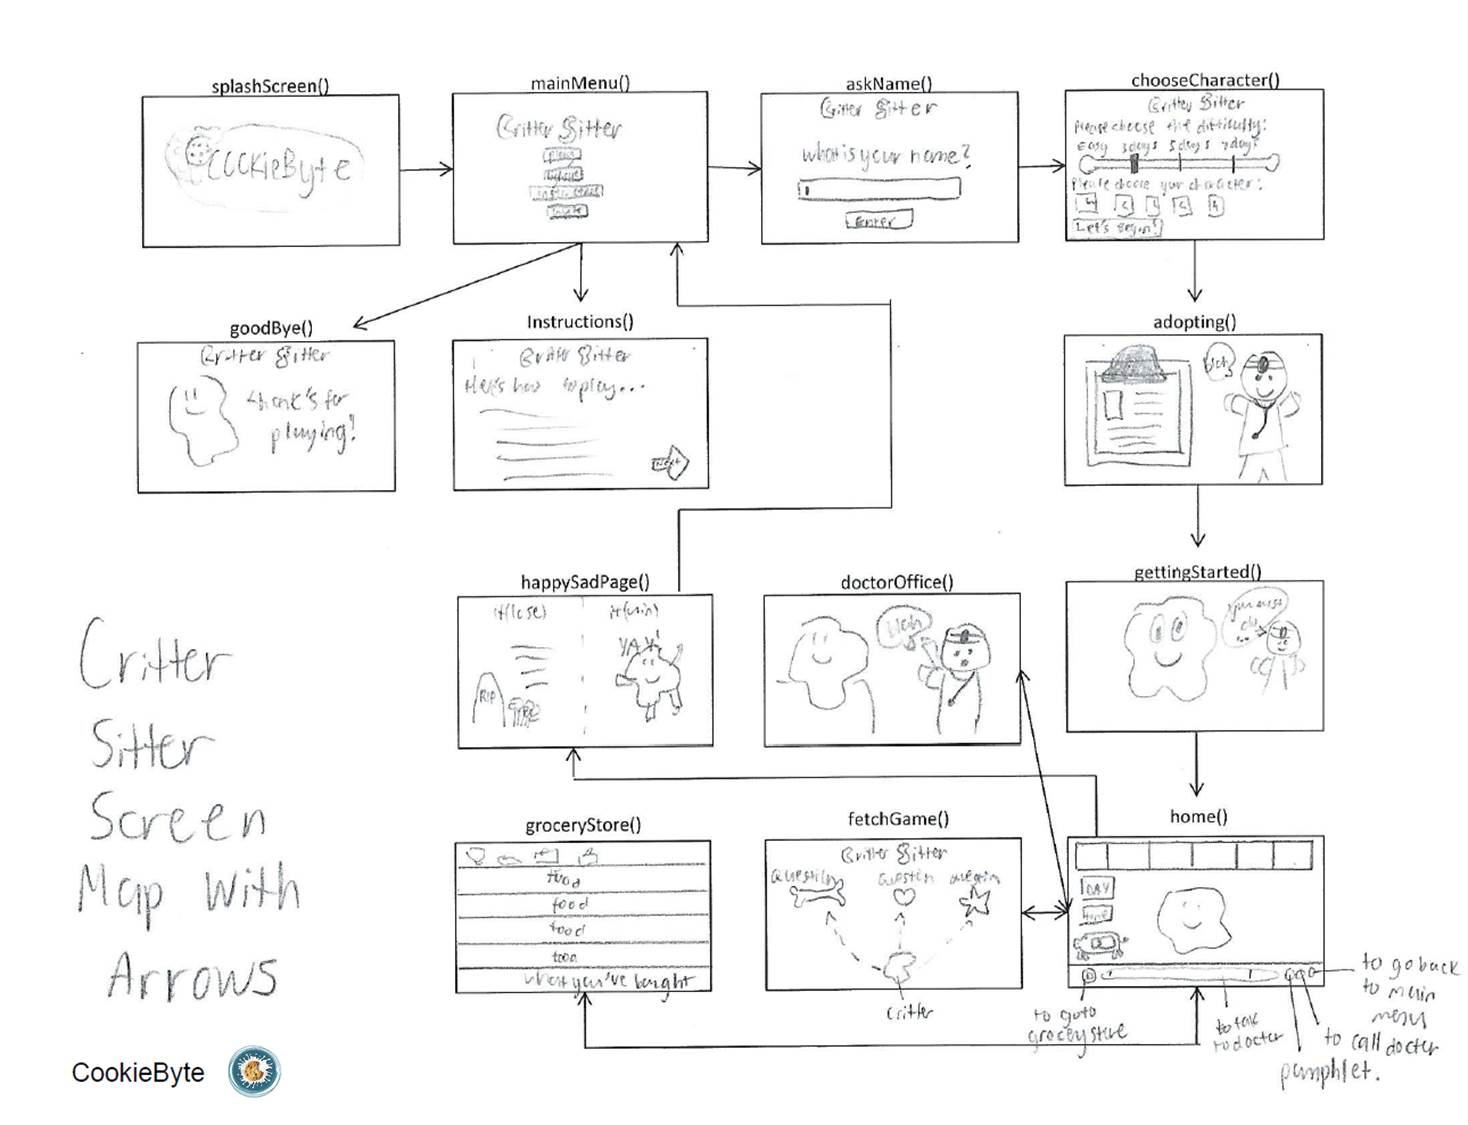 splashScreen()
CookieByte
mainMenu()
Critter Sitter
play
askName()
Critter Sitter
what is your name?
Enter
chooseCharacter()
Critter Sitter
Please choose the difficulty:
Easy 3days 5days 7days
Please choose your character:
Let's Begin!
goodBye()
Critter Sitter
thank's for
playing!
Instructions()
Critter Sitter
Here's how to play...
Next
adopting()
Blah
happySadPage()
if(lose)
if(win)
YAY!
RIP
doctorOffice()
Blah
gettingStarted()
groceryStore()
food
food
food
food
what you've bought
fetchGame()
Critter Sitter
question question question
Critter
home()
DAY
time
to go to
grocery store
to talk
to docter
to go back
to main
menu
to call docter
pamphlet.
Critter
Sitter
Screen
Map With
Arrows
CookieByte